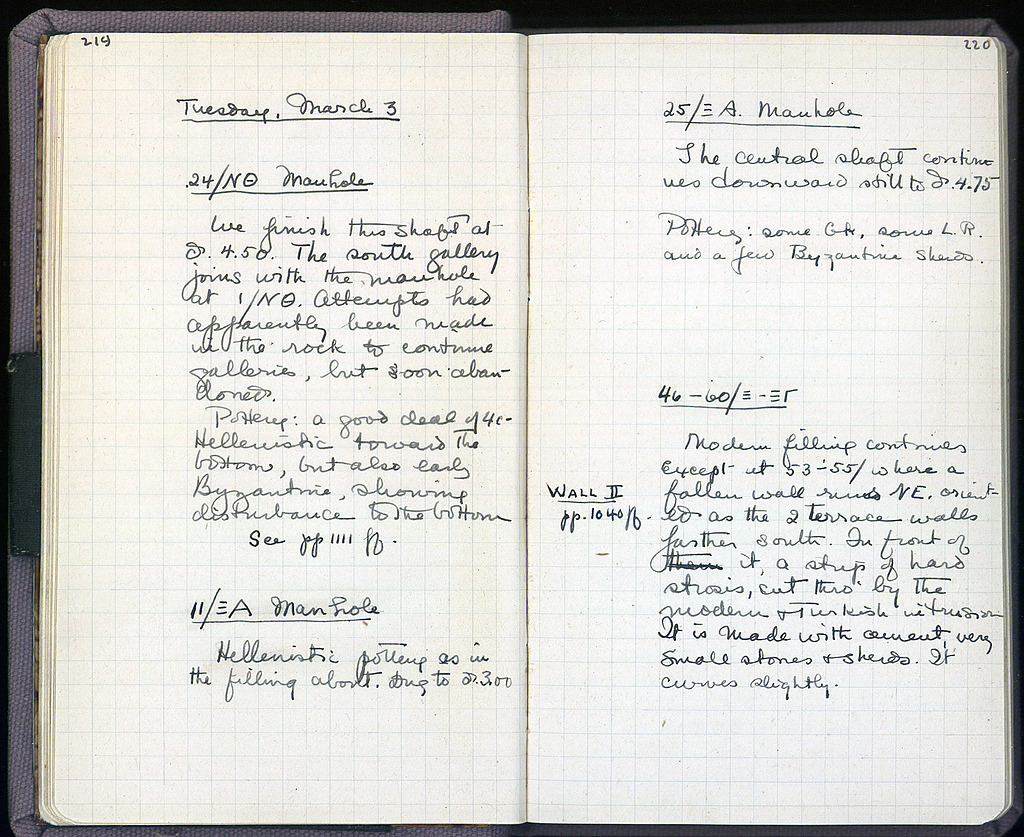 219
Tuesday, March 3
24/ΝΘ Manhole
We finish this shaft at
δ. 4.50. The south gallery
joins with the manhole
at 1/ΝΘ. Attempts had
apparently been made
in the rock to continue
galleries, but soon aban-
doned.
Pottery: a good deal of 4c-
Hellenistic toward the
bottom, but also early
Byzantine, showing
disturbance to the bottom
See pp 1111 ff.
11/ΞΑ Manhole
Hellenistic pottery as in
the filling about. Dug to δ. 3.00
220
25/ΞΑ. Manhole
The central shaft contin-
ues downward still to δ. 4.75
Pottery: some Gk, some L.R.
and a few Byzantine sherds.
46-60/Ξ-ΞΓ
Modern filling continues
except at 53-55/ where a
fallen wall runs NE. orient-
WALL II
pp. 1040 ff.
ed as the 2 terrace walls
farther south. In front of
them it, a strip of hard
strosis, cut thro' by the
modern & Turkish intrusion
It is made with cement, very
small stones & sherds. It
curves slightly.